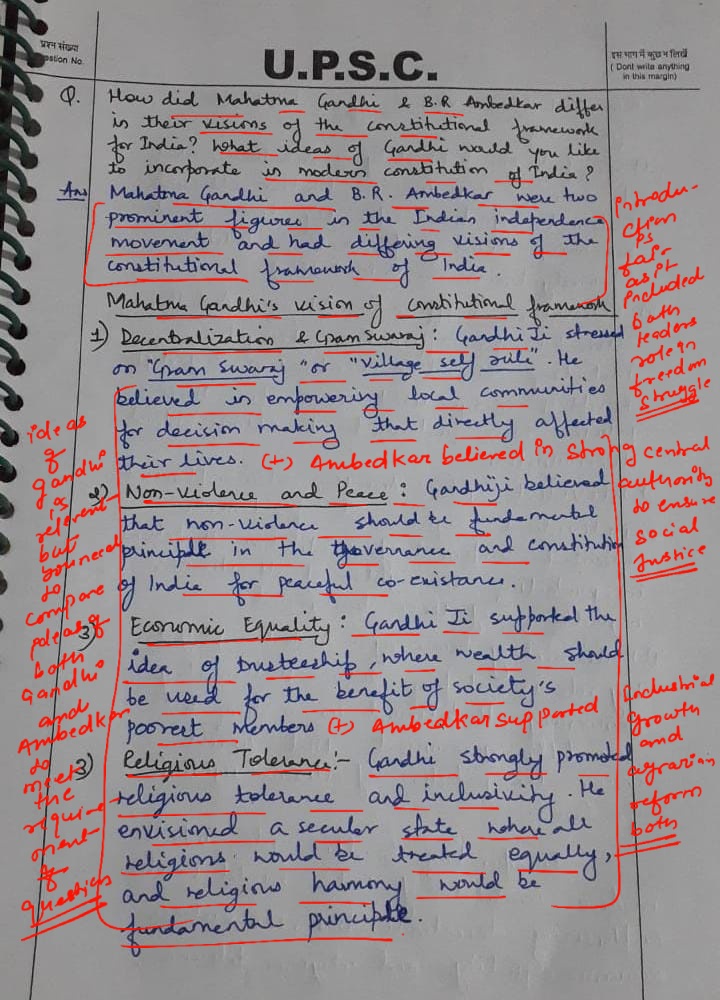 प्रश्न संख्या
estion No.
U.P.S.C.
इस भाग में कुछ न लिखें
( Dont write anything
in this margin)
Q. How did Mahatma Gandhi & B.R Ambedkar differ
in their visions of the constitutional framework
for India? What ideas of Gandhi would you like
to incorporate in modern constitution of India ?
Ans Mahatma Gandhi and B.R. Ambedkar were two
prominent figures in the Indian independence
movement and had differing visions of the
constitutional framework of India.
Introdu-
ction
is
fair
as it
included
both
leaders
role in
freedom
struggle
Mahatma Gandhi's vision of constitutional framework
1) Decentralization & Gram Swaraj : Gandhi Ji stressed
on "Gram Swaraj" or "Village self rule". He
believed in empowering local communities
for decision making that directly affected
their lives. (+) Ambedkar believed in strong central
authority
to ensure
social
justice
2) Non-violence and Peace : Gandhiji believed
that non-violence should be fundamental
principle in the governance and constitution
of India for peaceful co-existance.
3) Economic Equality : Gandhi Ji supported the
idea of trusteeship, where wealth should
be used for the benefit of society's
poorest members (+) Ambedkar supported
industrial
growth
and
agrarian
reform
both
3) Religious Tolerance:- Gandhi strongly promoted
religious tolerance and inclusivity. He
envisioned a secular state where all
religions would be treated equally,
and religious harmony would be
fundamental principle.
ideas
of
gandhi
is
relevent
but
to
compare
ideas of
both
Gandhi
and
Ambedkar
to
meet
the
require
ment
of
question